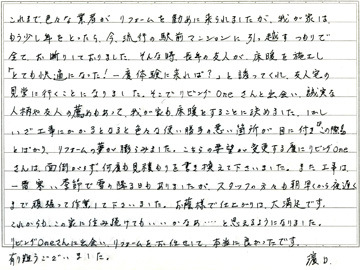 これまで色々な業者が リフォームを勧めに来られましたが、我が家は、
もう少し年をとったら、今、流行の駅前マンションに引っ越すつもりで
全て、お断りしておりました。そんな時、長年の友人が、床暖を施工し
「とても快適になった！一度体験に来れば？」と誘ってくれ、友人宅の
見学に行くことになりました。そこでリビングOneさんと出会い、誠実な
人柄や友人の薦めもあって、我が家も床暖をすることに決めました。
いざ工事にかかるとなると色々な使い勝手の悪い箇所が目に付き
とばかり、リフォームの夢が膨らみました。こちらの希望が変更する度にリビングOne
さんは、面倒がらず何度も見積もりを書き換えて下さいました。また工事は、
一番寒い季節で雪の降る日もありましたが、スタッフの方々も朝早くから夜遅く
まで頑張って作業して下さいました。お蔭様で仕上がりは、大満足です。
これからも、この家に住み続けてもいいかなあ…と思えるようになりました。
リビングOneさんに出会い、リフォームをお任せして、本当に良かったです。
有り難うございました。